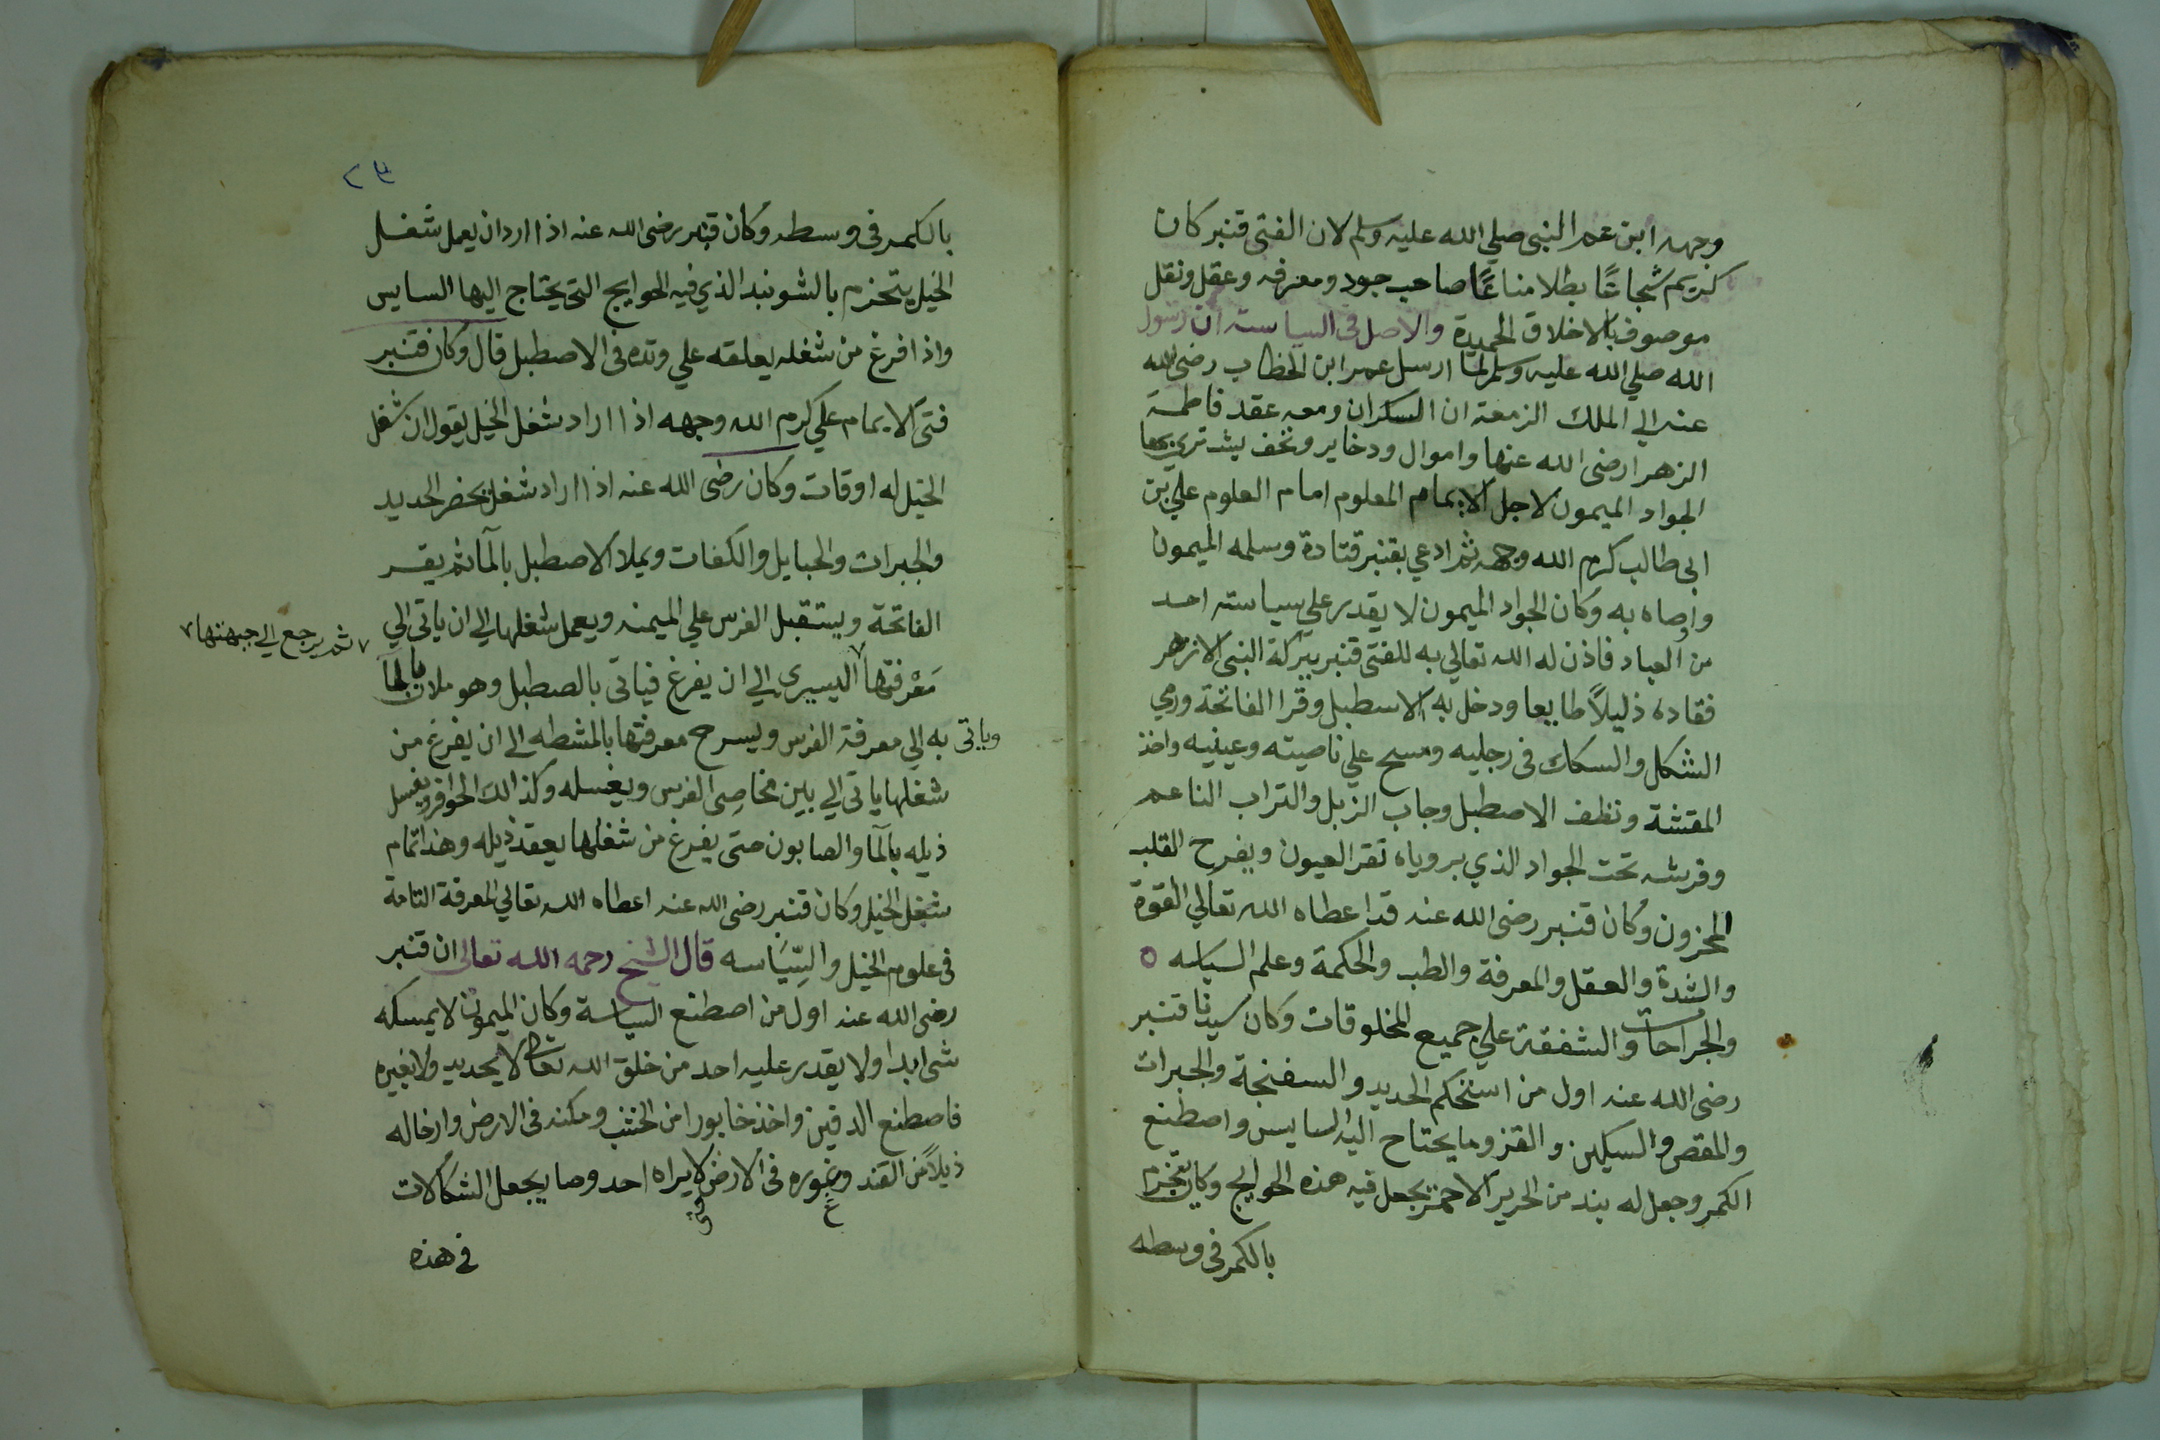 وجهه ابن عم النبى صلي الله عليه وسلم لان الفتى قنبر كان
كريم شجاعًا بطلا مناعًا صاحب جود ومعرفه وعقل ونقل
موصوف بالاخلاق الحميدة والاصل فى السياسته ان رسول
الله صلي الله عليه وسلم لما ارسل عمر ابن الخطاب رضى الله
عنه الي الملك الزمعة ان السكران ومعه عقد فاطمة
الزهرا رضى الله عنها واموال ودخاير وتحف يشتري بها
الجواد الميمون لاجل الايمام المعلوم امام العلوم علي بن
ابى طالب كرم الله وجهه ثم ادعي بقنبر قتادة وسلمه الميمون
واوصاه به وكان الجواد الميمون لا يقدر علي سياسته احد
من العباد فاذن له الله تعالي به للفتى قنبر ببركة النبى الازهر
فقاده ذليلاً طايعا ودخل به الاسطبل وقرا الفاتحة ورمي
الشكل والسكك فى رجليه ومسح علي ناصيته وعينيه واخذ
المقشة ونظف الاصطبل وجاب الزبل والتراب الناعم
وفرشه تحت الجواد الذي بروياه تقر العيون ويفرح القلب
المحزون وكان قنبر رضى الله عنه قد اعطاه الله تعالي القوة
والشدة والعقل والمعرفة والطب والحكمة وعلم السياسه
والجراحات والشفقة علي جميع المخلوقات وكان سيدنا قنبر
رضى الله عنه اول من استحكم الحديد والسفنجة والجبرات
والمقص والسكين والقز وما يحتاج اليه السايس واصطنع
الكمر وجعل له بند من الحرير الاحمر يجعل فيه هذه الحوايج وكان يتحزم
بالكمر فى وسطه
٢٣
بالكمر فى وسطه وكان قنبر رضى الله عنه اذا اراد ان يعمل شغل
الخيل يتحزم بالشوبند الذي فيه الحوايج التى يحتاج اليها السايس
واذا فرغ من شغله يعلقه علي وتده فى الاصطبل قال وكان قنبر
فتى الايمام علي كرم الله وجهه اذا اراد شغل الخيل يقول ان شغل
الخيل له اوقات وكان رضى الله عنه اذا اراد شغل يحضر الحديد
والجبرات والحبايل والكفات ويملا الاصطبل بالمآ ثم يقر
الفاتحة ويستقبل الفرس علي الميمنه ويعمل شغلها الي ان ياتى الي
٧ ثم يرجع الي جبهتها ٧
معرفتها اليسيرى الي ان يفرغ فياتى بالصطبل وهو ملان بالمآ
وياتى به الي معرفة الفرس ويسرح معرفتها بالمشطه الي ان يفرغ من
شغلها ياتى الي بين مخاصى الفرس ويغسله وكذالك الحوافر ويغسل
ذيله بالمآ والصابون حتى يفرغ من شغلها يعقد ذيله وهذا تمام
شغل الخيل وكان قنبر رضى الله عنه اعطاه الله تعالي المعرفة التامة
فى علوم الخيل والسِّيَاسه قال الشيخ رحمه الله تعالى ان قنبر
رضى الله عنه اول من اصطنع السياسة وكان الميمون لا يمسكه
شى ابدا ولا يقدر عليه احد من خلق الله تعالى لا بحديد ولا بغيره
فاصطنع الدقين واخذ خابورا من الخشب ومكنه فى الارض وارخاله
ذيلاً من القند وغبوره فى الارض لا يراه احد وصار يجعل الشكالات
فى هذه